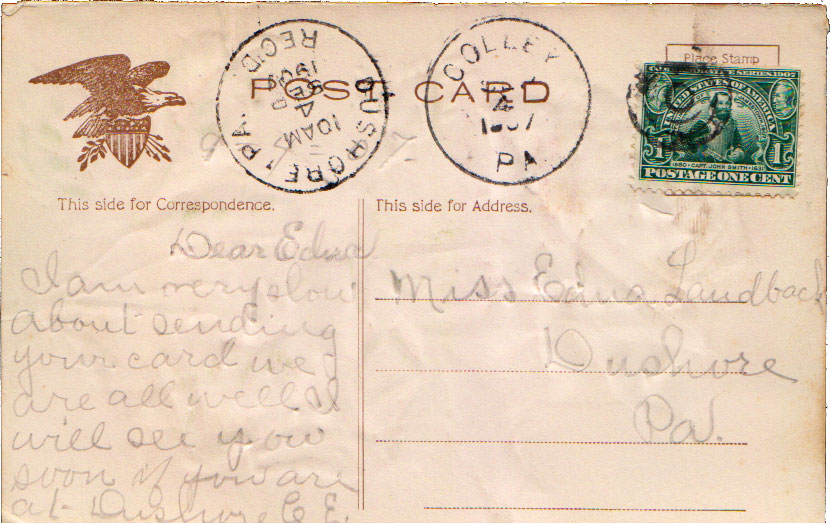 POST CARD
DUSHORE PA.
SEP
4
10 AM
190
REC'D
COLLEY
4
1907
PA
Place Stamp
SERIES 1907
UNITED STATES OF AMERICA
1 1
1580 · CAPT. JOHN SMITH · 1631
POSTAGE ONE CENT
This side for Correspondence.
This side for Address.
Dear Edna
I am very slow
about sending
your card we
are all well I
will see you
soon if you are
at Dushore C. E.
Miss Edna Landback
Dushore
Pa.